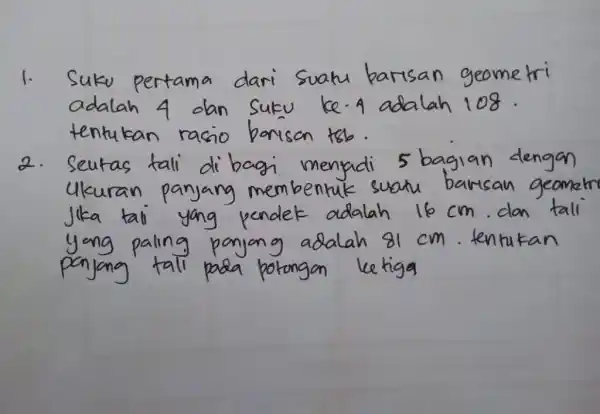 1. Suku pertama dari suatu barisan geometri
adalah 4 dan suku ke-4 adalah 108.
tentukan rasio barisan tsb.
2. Seutas tali dibagi menjadi 5 bagian dengan
ukuran panjang membentuk suatu barisan geometri
Jika tali yang pendek adalah 16 cm. dan tali
yang paling panjang adalah 81 cm. tentukan
panjang tali pada potongan ketiga